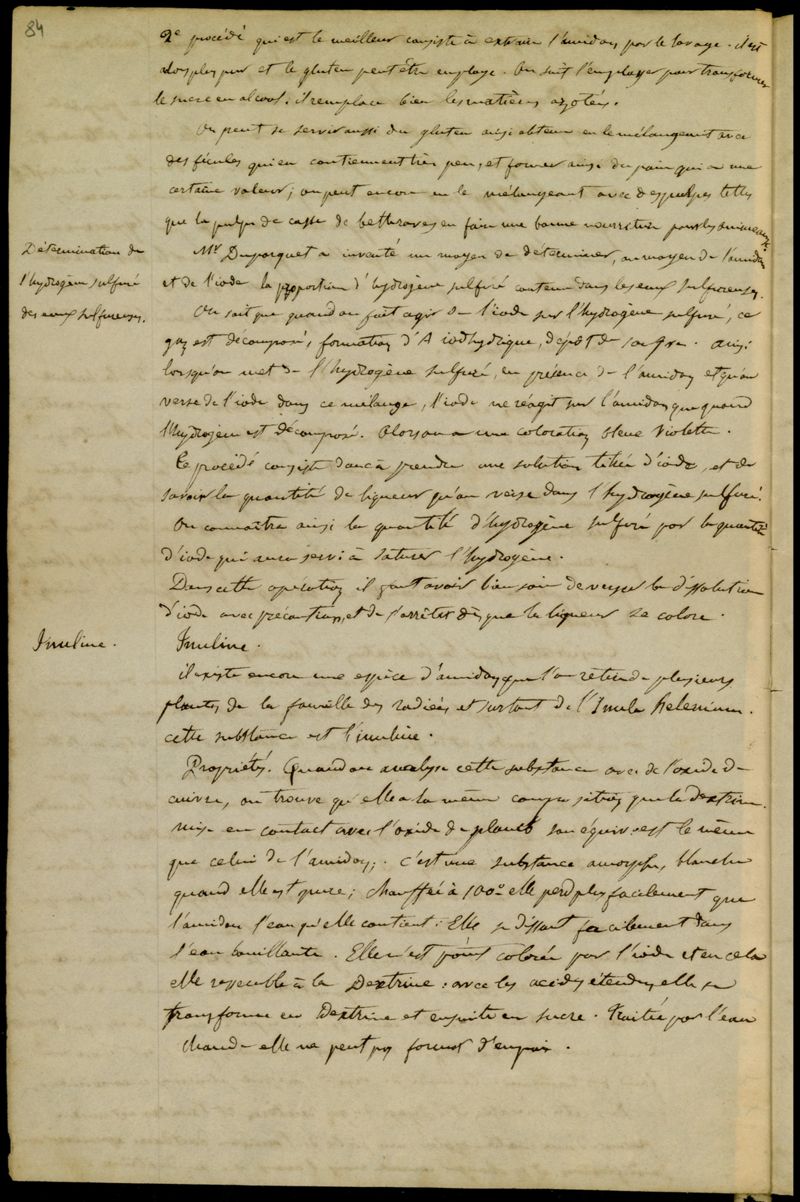 84
2e procédé qui est le meilleur consiste à extraire l'amidon par le lavage. il est
alors plus pur et le gluten peut être employé. On sait l'employer pour transformer
le sucre en alcool. il remplace bien les matières azotées.
On peut se servir aussi du gluten ainsi obtenu en le mélangeant avec
des fécules qui en contiennent très peu, et former ainsi du pain qui a une
certaine valeur; on peut encore en le mélangeant avec des pulpes telles
que la pulpe de de betteraves en faire une bonne nourriture pour les animaux.
Détermination de
l'hydrogène sulfuré
des eaux sulfureuses.
Mr Dupasquet a inventé un moyen de déterminer, au moyen de l'amidon
et de l'iode la proportion d'hydrogène sulfuré contenu dans les eaux sulfureuses.
On sait que quand on fait agir de l'iode sur l'hydrogène sulfuré, ce
gaz est décomposé, formation d'A iodhydrique, dépôt de soufre. ainsi
lorsqu'on met de l'hydrogène sulfuré, en présence de l'amidon et qu'on
verse de l'iode dans ce mélange, l'iode ne réagit sur l'amidon que quand
l'hydrogène est décomposé. Alors on a une coloration bleue violette.
Ce procédé consiste donc à prendre une solution titrée d'iode, et de
savoir la quantité de liqueur qu'on verse dans l'hydrogène sulfuré.
On connaîtra ainsi la quantité d'hydrogène sulfuré par la quantité
d'iode qui aura servi à saturer l'hydrogène.
Dans cette opération il faut avoir bien soin de verser la dissolution
d'iode avec précaution, et de s'arrêter dès que la liqueur se colore.
Inuline.
Inuline.
il existe encore une espèce d'amidon que l'on retire de plusieurs
plantes de la famille des radiées et surtout de l'Inula helenium.
cette substance est l'inuline.
Propriétés. Quand on analyse cette substance avec de l'oxide de
cuivre, on trouve qu'elle a la même composition que la dextrine.
mise en contact avec l'oxide de plomb son équiv. est le même
que celui de l'amidon; c'est une substance amorphe, blanche
quand elle est pure; chauffée à 100° elle perd plus facilement que
l'amidon l'eau qu'elle contient: Elle se dissout facilement dans
l'eau bouillante. Elle n'est point colorée par l'iode et en cela
elle ressemble à la Dextrine: avec les acides étendus elle se
transforme en Dextrine et ensuite en sucre. Traitée par l'eau
chaude elle ne peut pas former d'empois.